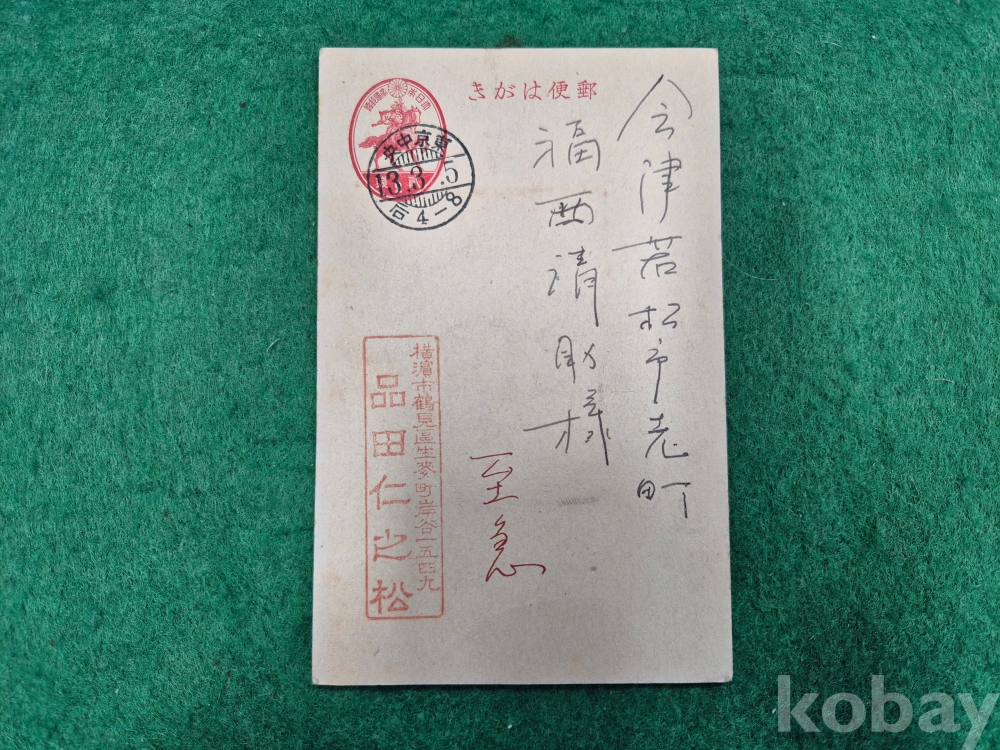 郵便はがき
大日本帝國郵便
東京中央
13.3.5
后4-8
会津若松市老町
福西清助様
至急
横濱市鶴見區生麥町岸谷一五四九
品田仁之松
kobay